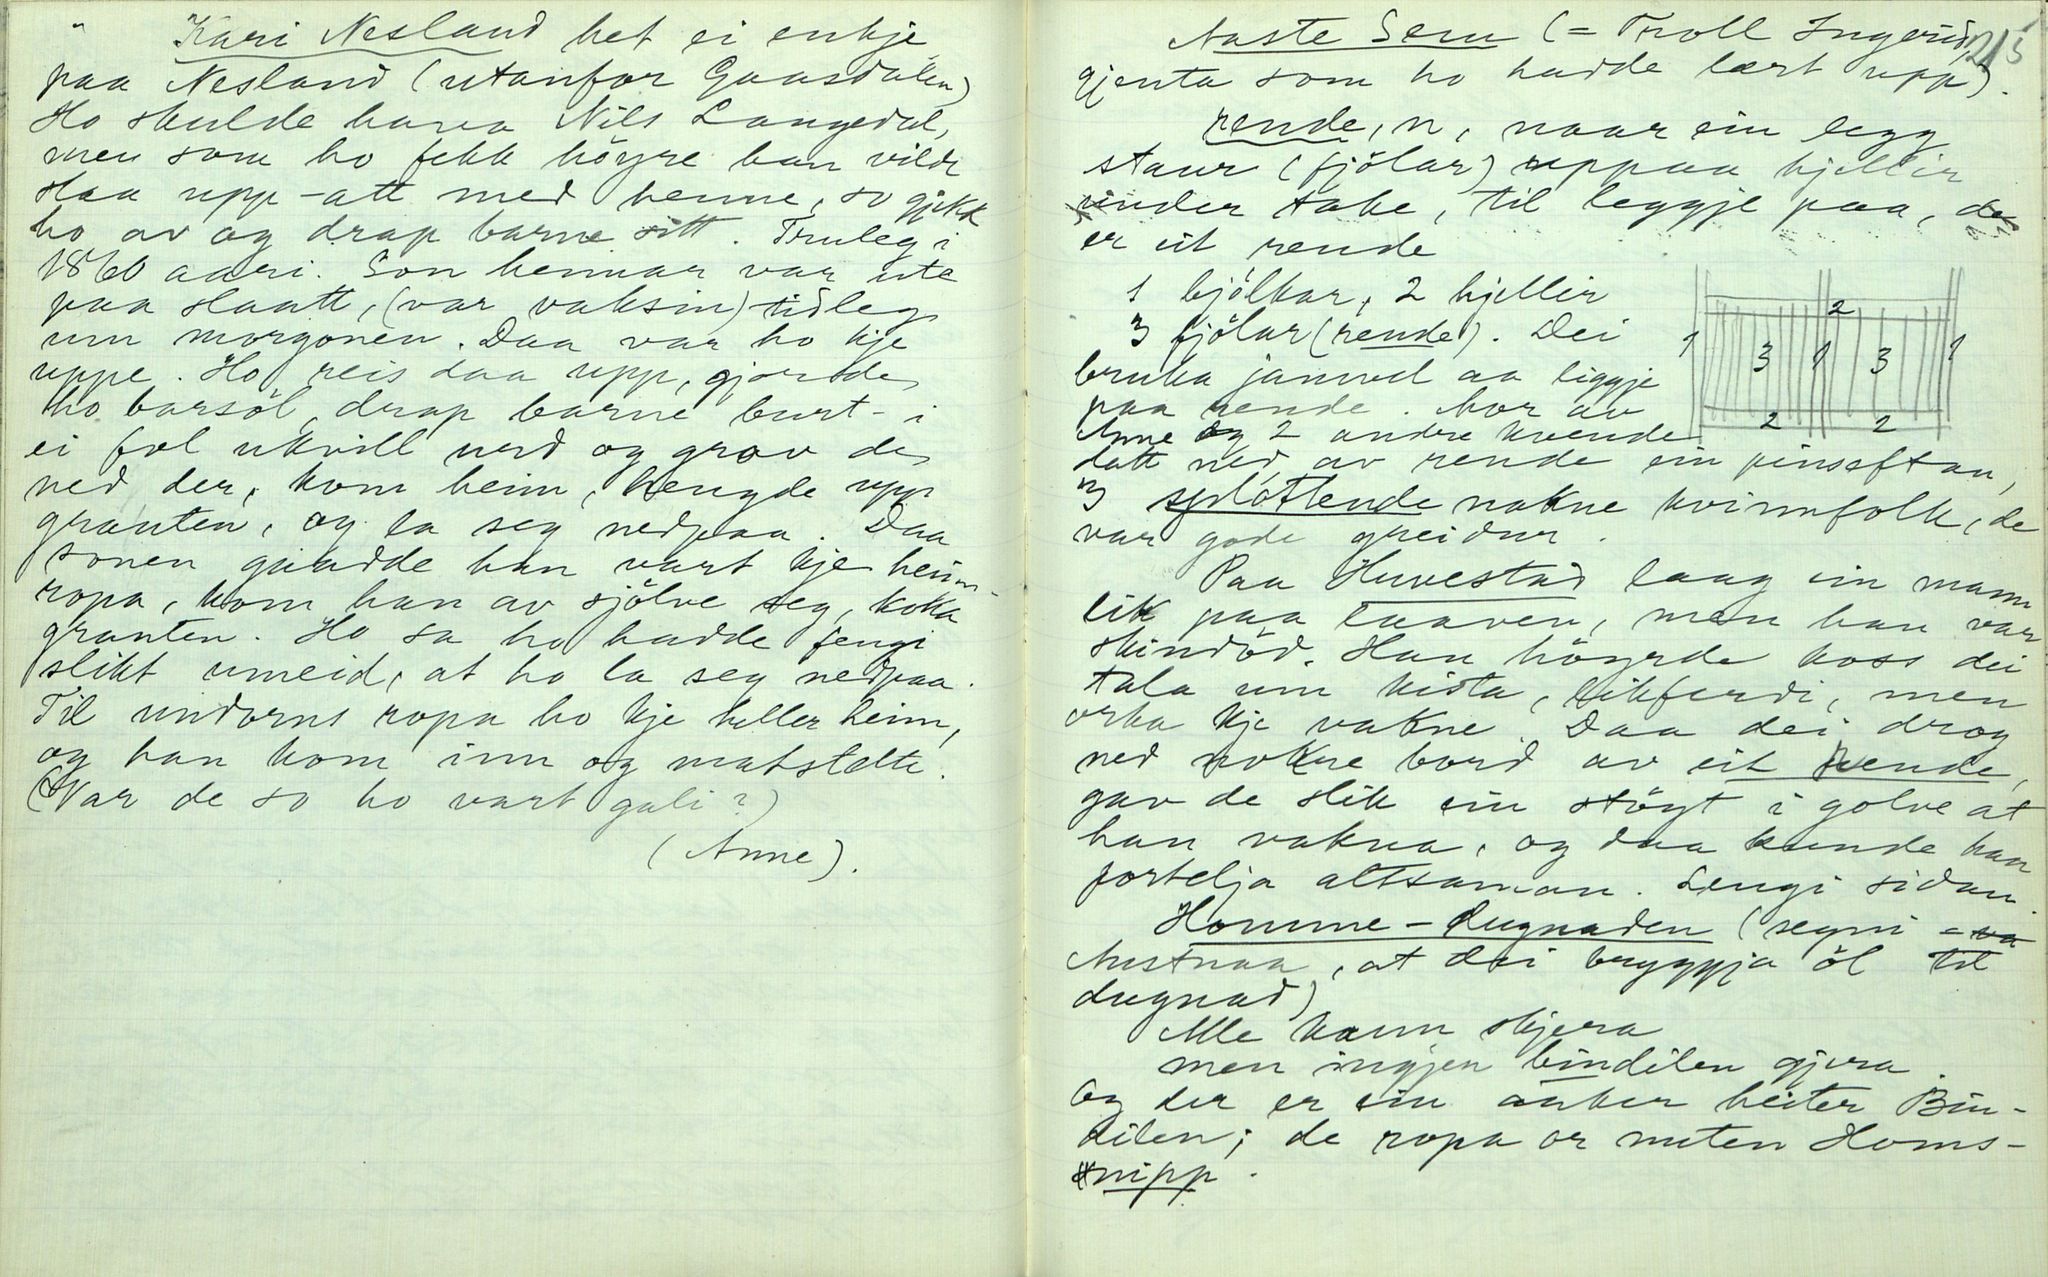 Kari Nesland het ei enkje
paa Nesland (utanfor Gaasdalen)
Ho skulde hava Nils Langedal,
men som ho fekk höyre han vilde
slaa upp-att med henne, so gjekk
ho av og drap barne sitt. Truleg i
1860 aari. Son hennar var ute
paa slaatt, (var vaksin) tidleg
um morgonen. Daa var ho kje
uppe. Ho reis daa upp, gjorde
ho barsöl, drap barne burt-i
ei fol ukvill urd og grov de
ned der, kom heim, hengde upp
grauten, og la seg nedpaa. Daa
sonen gaadde han vart kje heim-
ropa, kom han av sjölve seg, koka
grauten. Ho sa ho hadde fengi
slikt umeid, at ho la seg nedpaa.
Til undorns ropa ho kje heller heim,
og han kom inn og matstelte.
(Var de so ho vart gali?)
(Anne).
215
Aaste Sem (= Troll Ingerid,
gjenta som ho hadde lært upp).
rende, n, naar ein legg
staur (fjölar) uppaa hjellir
under take, til leggje paa, de
er eit rende
1 bjölkar, 2 hjellir
3 fjölar (rende). Dei
bruka jamvel aa liggje
paa rende. Mor av
Anne og 2 andre kvende
datt ned av rende ein pinseftan,
3 splottende nakne kvinnfolk, de
var gode greidur.
2
1 3 1 3 1
2 2
Paa Huvestad laag ein mann
lik paa laaven, men han var
skindöd. Han höyrde koss dei
tala um kista, likferdi, men
orka kje vakne. Daa dei drog
ned nokre bord av eit rende,
gav de slik ein stöyt i golve at
han vakna, og daa kunde han
fortelja altsaman. Lengi sidan.
Homme-dugnaden (segni = va
Austnaa, at dei bryggja öl til
dugnad)
Alle kann skjera
men ingjen bindilen gjera
Og der er ein aaker heiter Bin-
dilen; de ropa or nuten Homs-
nipp.